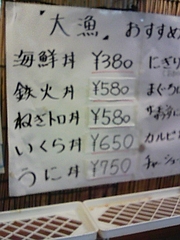 「大漁」おすすめ
海鮮丼 ¥380
鉄火丼 ¥580
ねぎトロ丼 ¥580
いくら丼 ¥650
うに丼 ¥750
にぎり
まぐろ
カルビ
チャーシュー